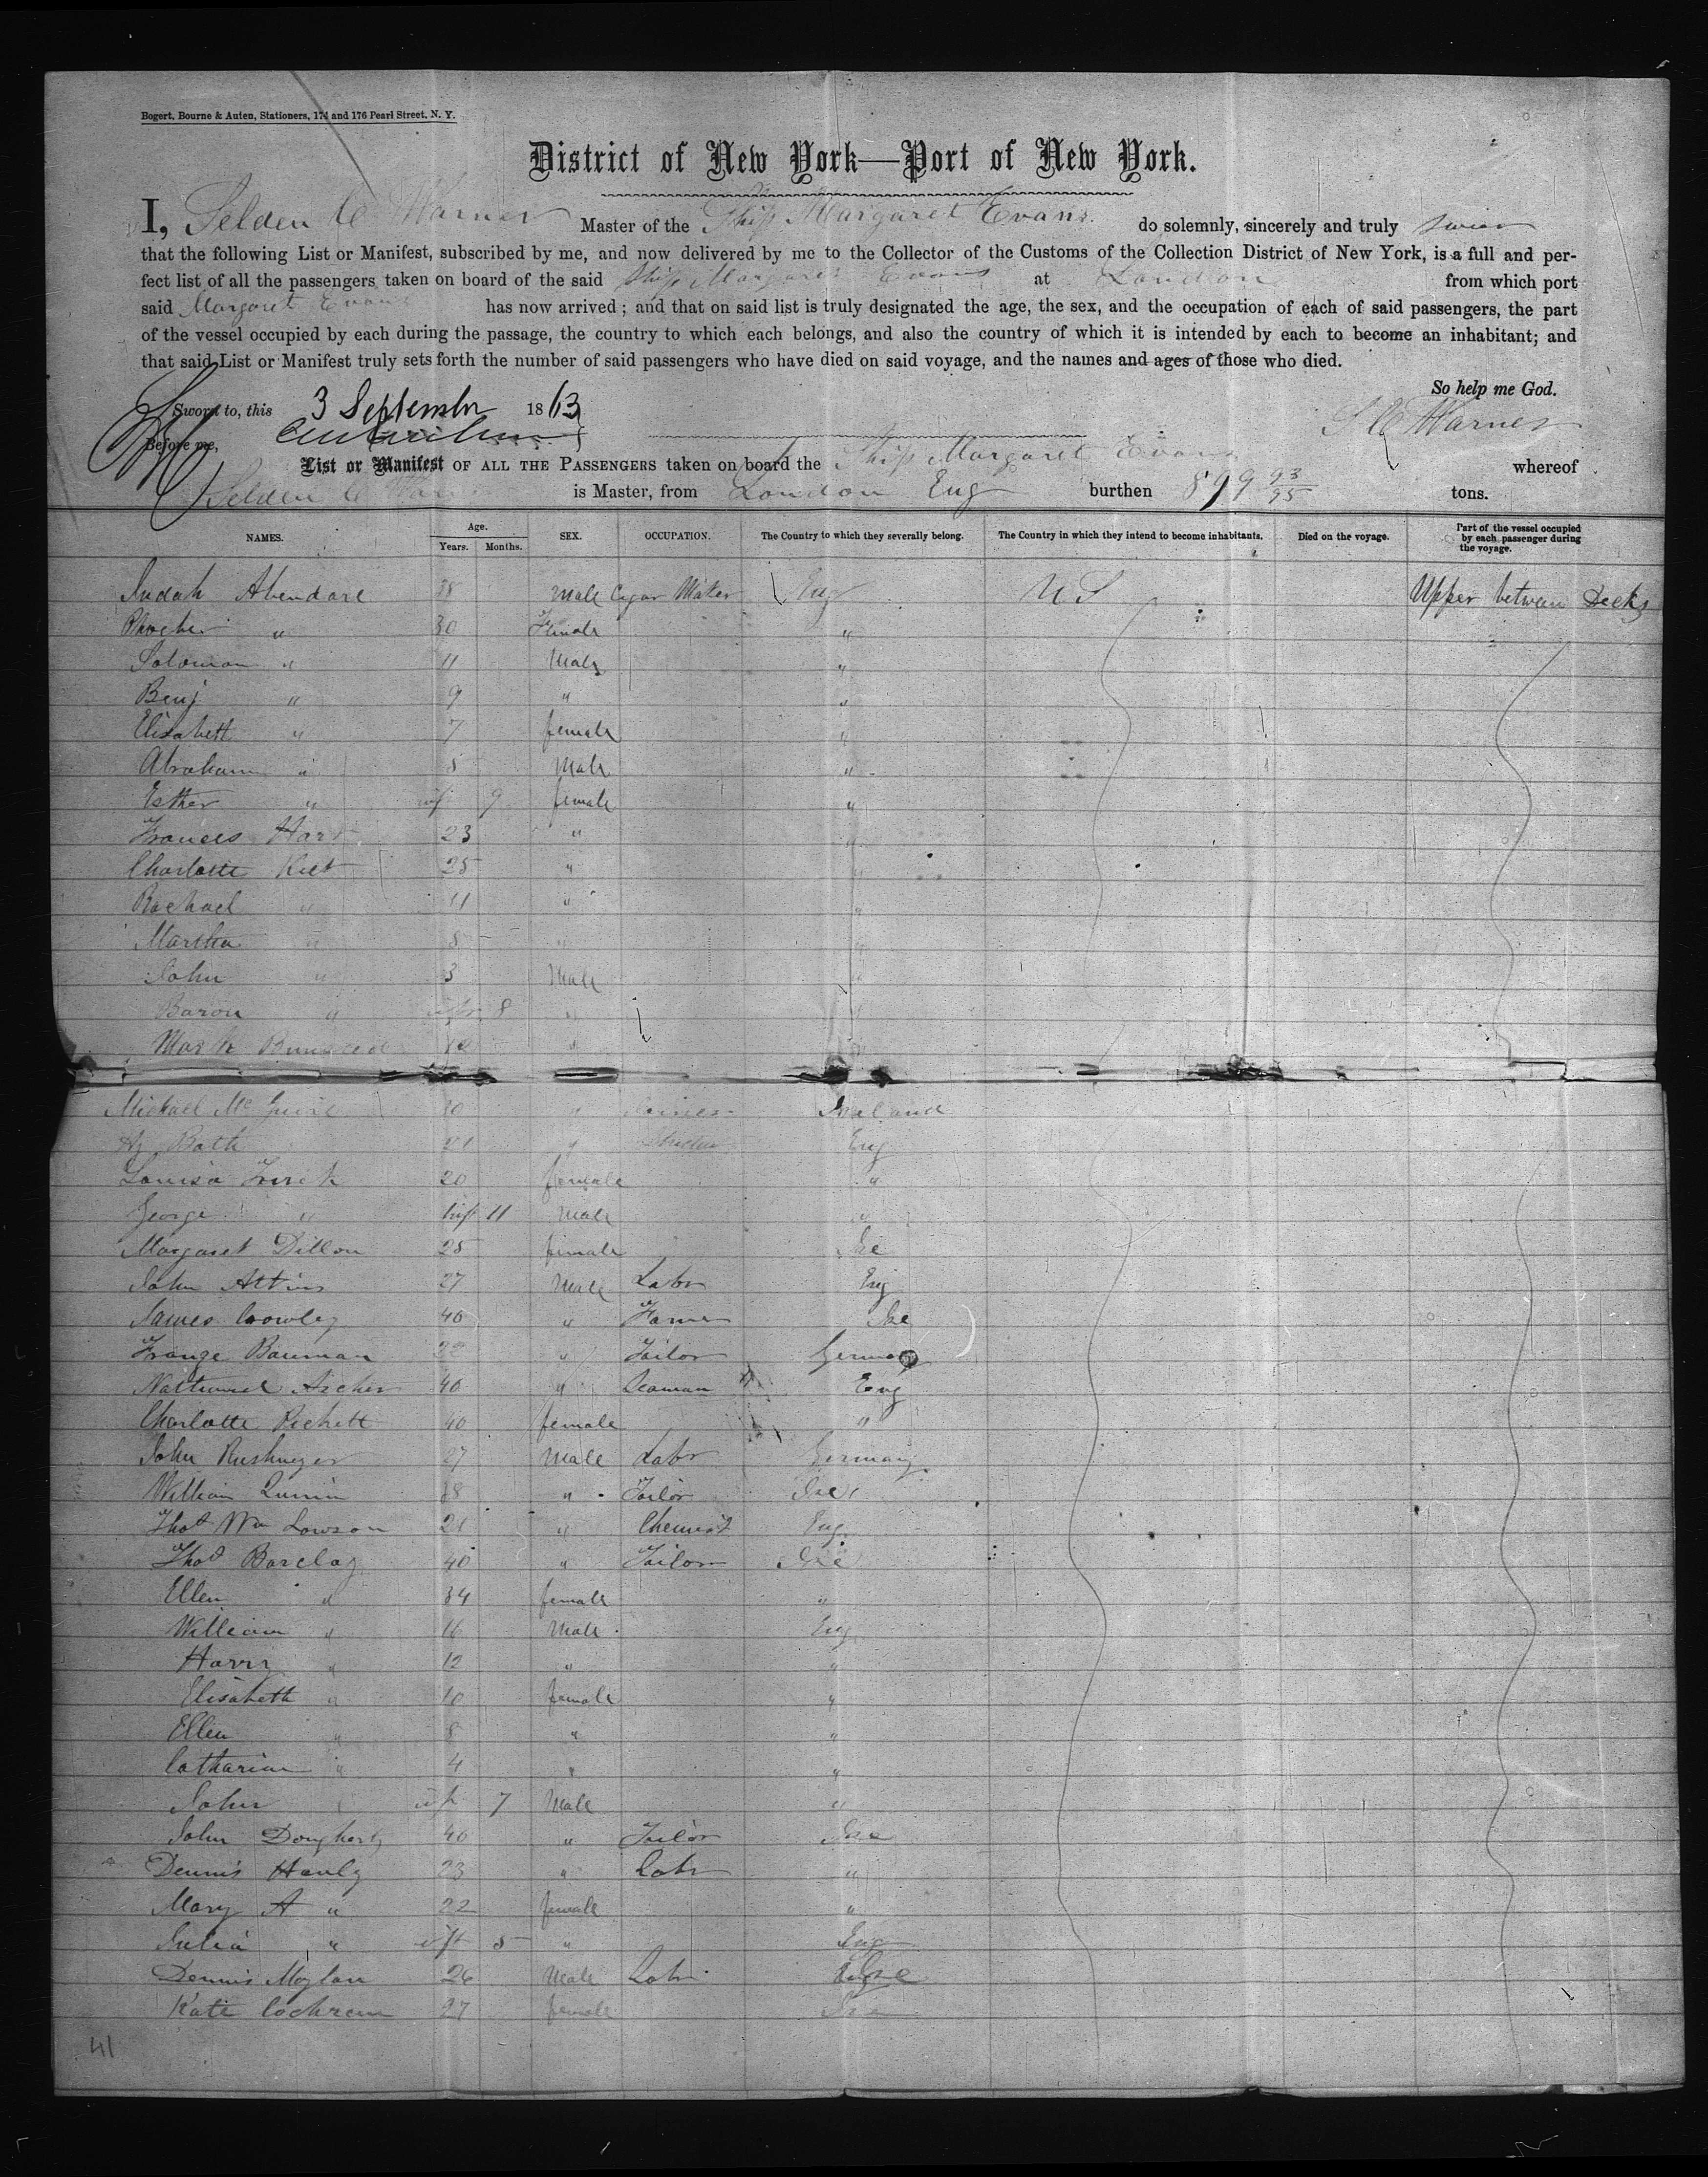 Bogert, Bourne & Auten, Stationers, 174 and 176 Pearl Street, N. Y.
District of New York—Port of New York.
I, Selden C Warner Master of the Ship Margaret Evans do solemnly, sincerely and truly swear
that the following List or Manifest, subscribed by me, and now delivered by me to the Collector of the Customs of the Collection District of New York, is a full and per-
fect list of all the passengers taken on board of the said Ship Margaret Evans at London from which port
said Margaret Evans has now arrived; and that on said list is truly designated the age, the sex, and the occupation of each of said passengers, the part
of the vessel occupied by each during the passage, the country to which each belongs, and also the country of which it is intended by each to become an inhabitant; and
that said List or Manifest truly sets forth the number of said passengers who have died on said voyage, and the names and ages of those who died.
So help me God.
Sworn to, this 3 September 1863
S C Warner
Before me,
List or Manifest OF ALL THE PASSENGERS taken on board the Ship Margaret Evans whereof
Selden C Warner is Master, from London Eng burthen 899 93/95 tons.
NAMES. Age. Years. Months. SEX. OCCUPATION. The Country to which they severally belong. The Country in which they intend to become inhabitants. Died on the voyage. Part of the vessel occupied by each passenger during the voyage.
Judah Abendare 38 Male Cigar Maker Eng U S Upper between Decks
Phoebe " 30 Female "
Solomon " 11 Male "
Benj " 9 " "
Elisabeth " 7 female "
Abraham " 5 Male "
Esther " inf 9 female "
Frances Hart 23 " "
Charlotte 25 " "
Rachael " 11 " "
Martha " 5 " "
John " 3 Male "
Baron " inf 8 " "
Mark " "
Michael Mc Guire 30 " Ireland
Bath 21 " Eng
Louisa 20 female "
George " inf 11 Male "
Margaret Dillon 25 female Ire
John Atkins 27 Male Labr Eng
James Crowley 40 " Farmer Ire
Frange Bauman 22 " Tailor Germany
Nathaniel Archer 40 " Seaman Eng
Charlotte Pickett 40 female "
John 27 Male Labr Germany
William Quinin 38 " Tailor Ire
Thos Wm Lowson 21 " Chemist Eng
Thos Barclay 40 " Tailor Ire
Ellen " 34 female "
William " 16 Male Eng
Harry " 12 " "
Elisabeth " 10 female "
Ellen " 8 " "
Catharine " 4 " "
John " inf 7 Male "
John Dougherty 40 " Tailor Ire
Dennis Hanly 23 " Labr "
Mary A " 22 female "
Julia " inf 5 " Eng
Dennis Moylan 26 Male Labr Ire
Kate Cochrean 27 female Ire
41